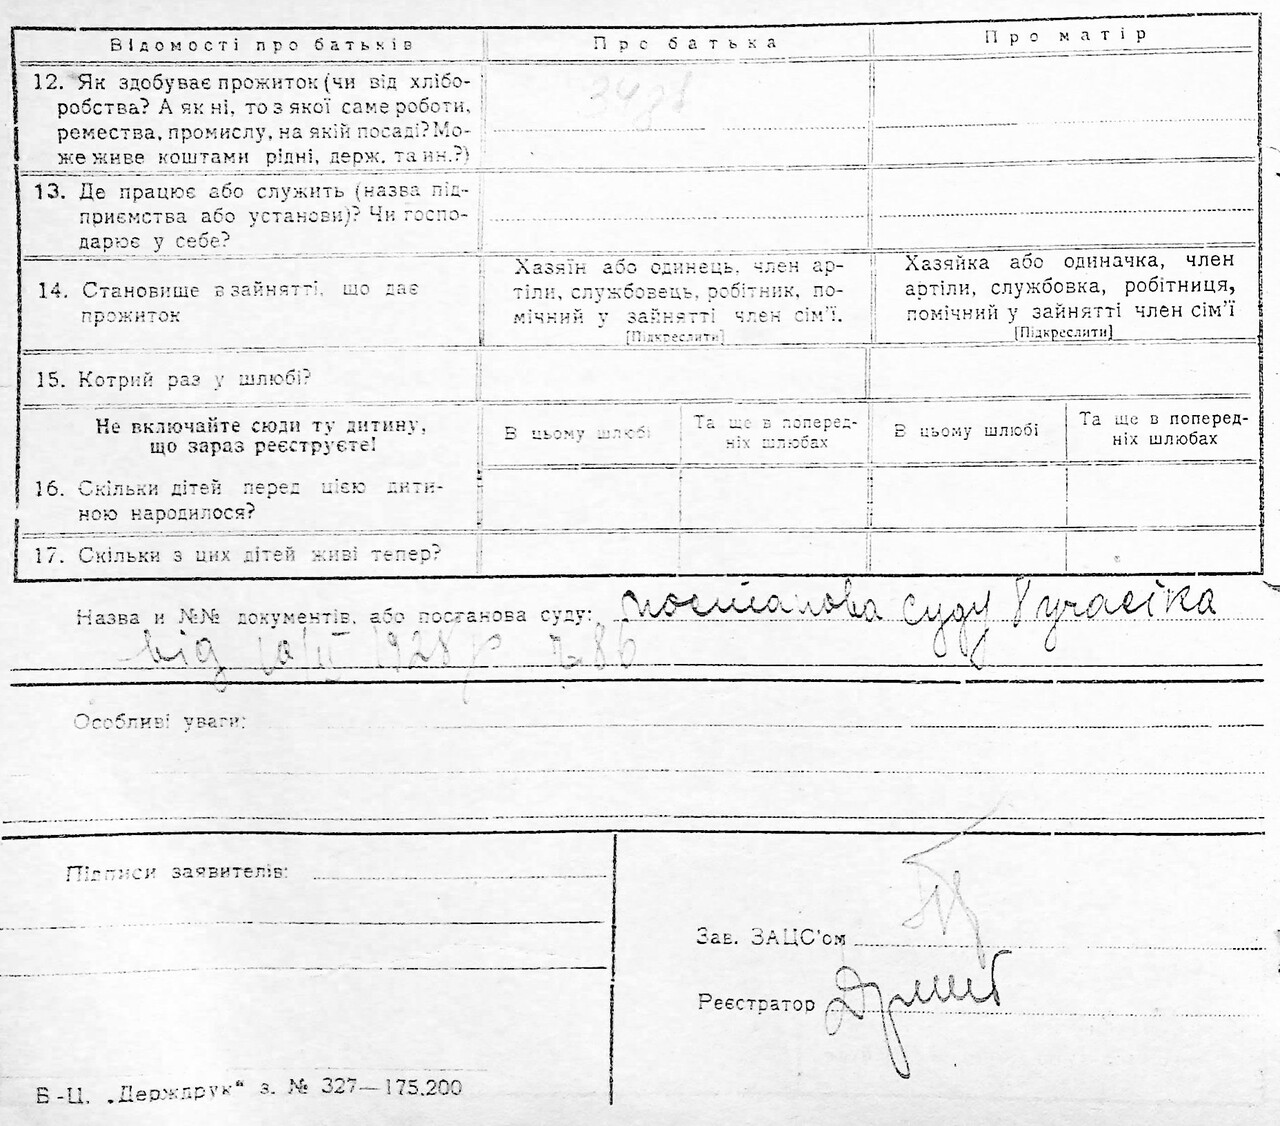 Відомості про батьків Про батька Про матір
12. Як здобуває прожиток (чи від хлібо-
робства? А як ні, то з якої саме роботи,
ремества, промислу, на якій посаді? Мо-
же живе коштами рідні, держ. та ин.?)
13. Де працює або служить (назва під-
приємства або установи)? Чи госпо-
дарює у себе?
14. Становище в зайнятті, що дає
прожиток
Хазяїн або одинець, член ар-
тіли, службовець, робітник, по-
мічний у зайнятті член сім'ї.
[Підкреслити]
Хазяйка або одиначка, член
артіли, службовка, робітниця,
помічний у зайнятті член сім'ї
[Підкреслити]
15. Котрий раз у шлюбі?
Не включайте сюди ту дитину,
що зараз реєструєте!
В цьому шлюбі
Та ще в поперед-
ніх шлюбах
В цьому шлюбі
Та ще в поперед-
ніх шлюбах
16. Скільки дітей перед цією дити-
ною народилося?
17. Скільки з цих дітей живі тепер?
Назва и №№ документів, або постанова суду: постанова суду
від 10/II 1928 р № 86
Особливі уваги:
Підписи заявителів:
Зав. ЗАЦС'ом
Реєстратор
Б-Ц. „Держдрук“ з. № 327—175.200